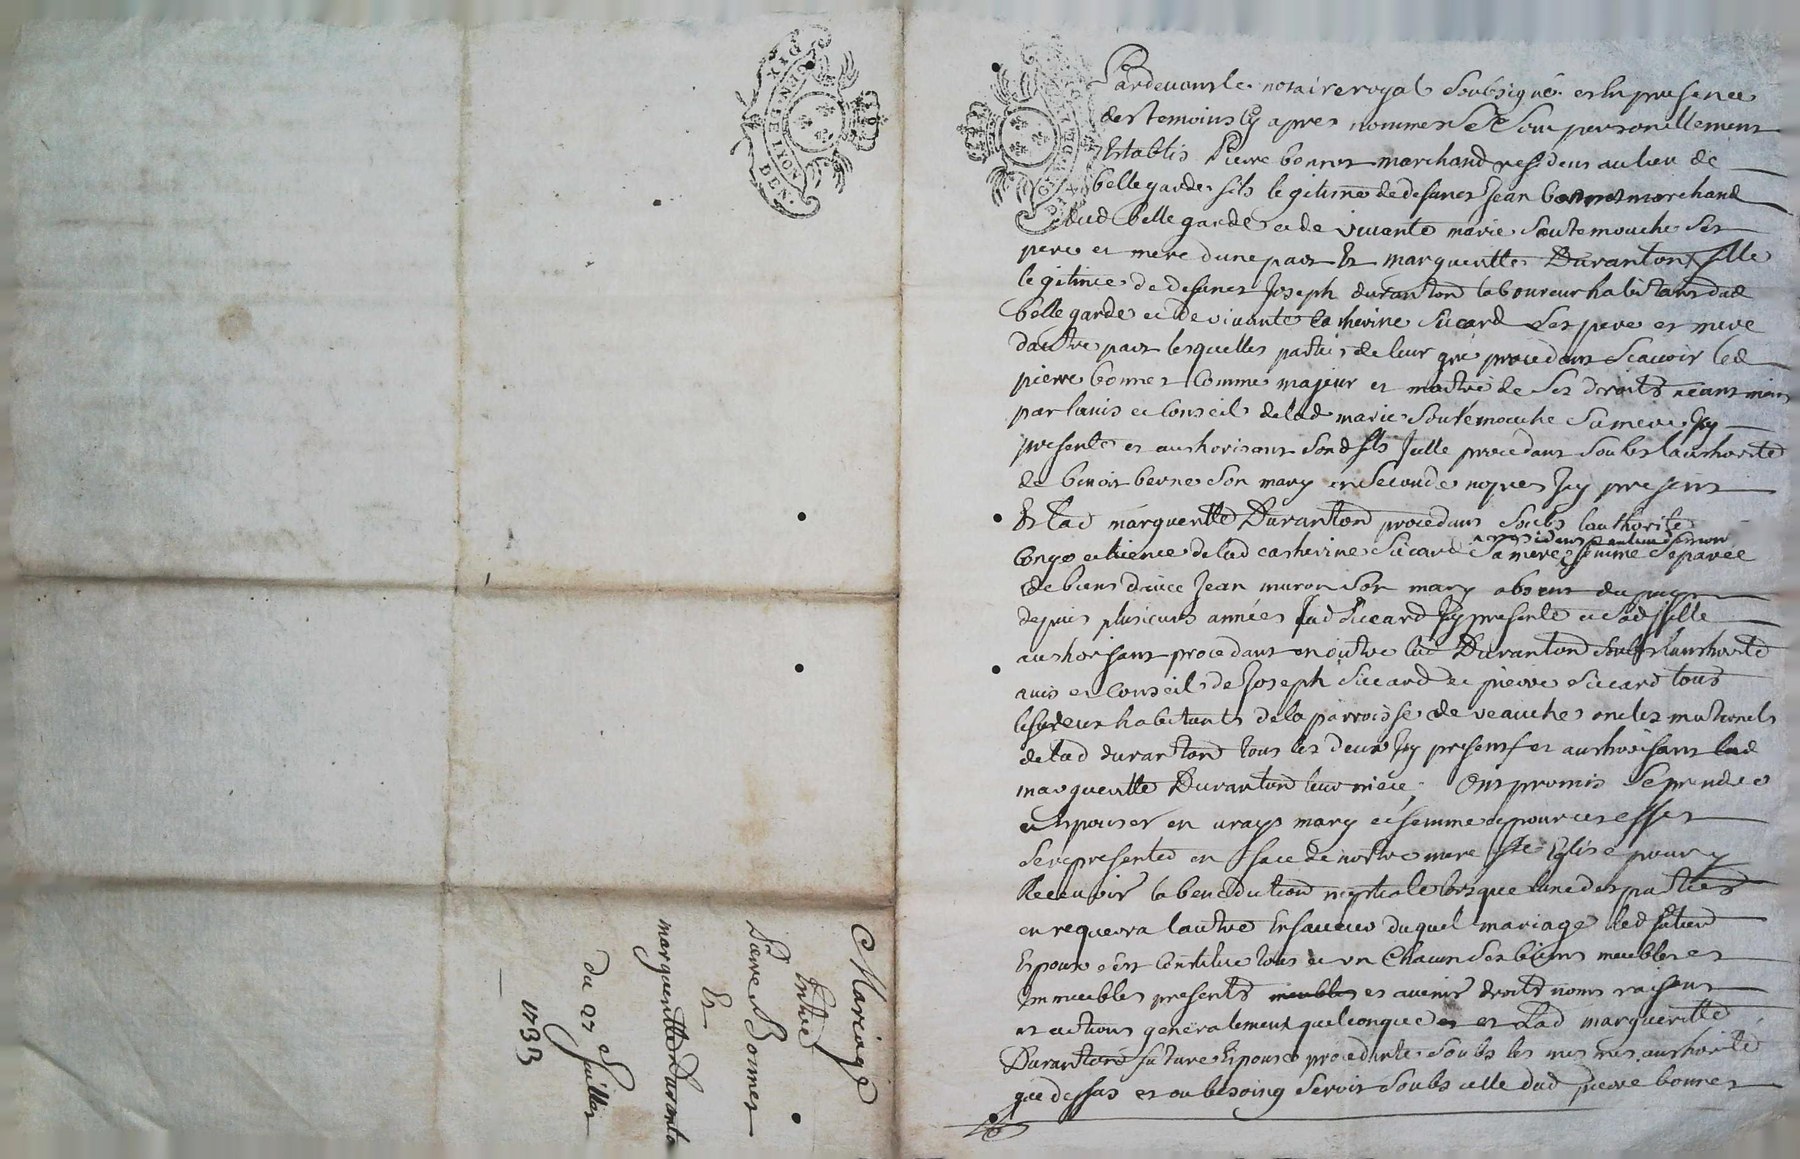 GEN. DE LYON
DEN.
Mariage
Entre
Pierre Bonnet
Et
margueritte duranton
du 27 Juillet
1733
Pardevant le notaire royal Soubsigné et En presence
des temoins Cy apres nommes Se Sont personnellement
Establis Pierre bonnet marchand resident au lieu de
bellegarde fils legitime de defunct Jean bonnet marchand
dud bellegarde et de vivante marie Soutemouche Ses
pere et mere dune part Et margueritte Duranton fille
legitime de defunct Joseph duranton laboureur habitant dud
bellegarde et de vivante Catherine Sicard Ses pere et mere
dautre part lesquelles parties de leur gré procedant Scavoir led
pierre bonnet Comme majeur et maitre de Ses droits neantmoins
par lavis et Conseil de lad marie Soutemouche Sa mere Icy
presente et authorisant Sond fils Icelle procedant Soubs lauthorite
de benoit berne Son mary en Seconde nopces Icy present
Et lad margueritte Duranton procedant Soubs lauthorite
Congé et licence de lad Catherine Sicard Sa mere femme Separée
de biens davec Jean muron Son mary absent du pays
depuis plusieurs années lad Sicard Icy presente et Sad fille
authorisant procedant en outre lad Duranton Soubs lauthorite
avis et Conseil de Joseph Siccard et pierre Siccard tous
les deux habitants de la parroisse de veauche oncles maternels
de lad duranton tous les deux Icy present et authorisant lad
margueritte Duranton leur niece; Ont promis Se prendre
et Epouser en vrays mary et femme et pour cet effet
Se representer en face de nostre mere Ste Eglise pour y
Recevoir la benediction nuptiale lorsque lune des parties
en requerra lautre En faveur duquel mariage led futur
Epoux sest Constitue tous et un Chacun Ses biens meubles et
Immeubles presents meubles et avenir droits noms raisons
et actions generalement quelconques et Lad margueritte
Duranton future Epouse procedante Soubs les mesmes authorité
que dessus et au besoing Seroit Soubs celle dud pierre bonnet